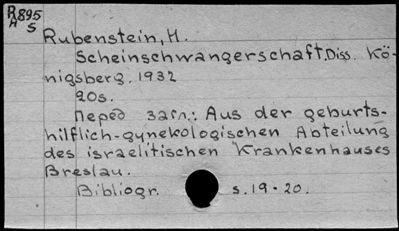 R895
H S
Rubenstein, H.
Scheinschwangerschaft, Diss. Kö-
nigsberg, 1932
20s.
Перед загл.: Aus der geburts-
hilflich-gynekologischen Abteilung
des israelitischen Krankenhauses
Breslau.
Bibliogr. s. 19-20.